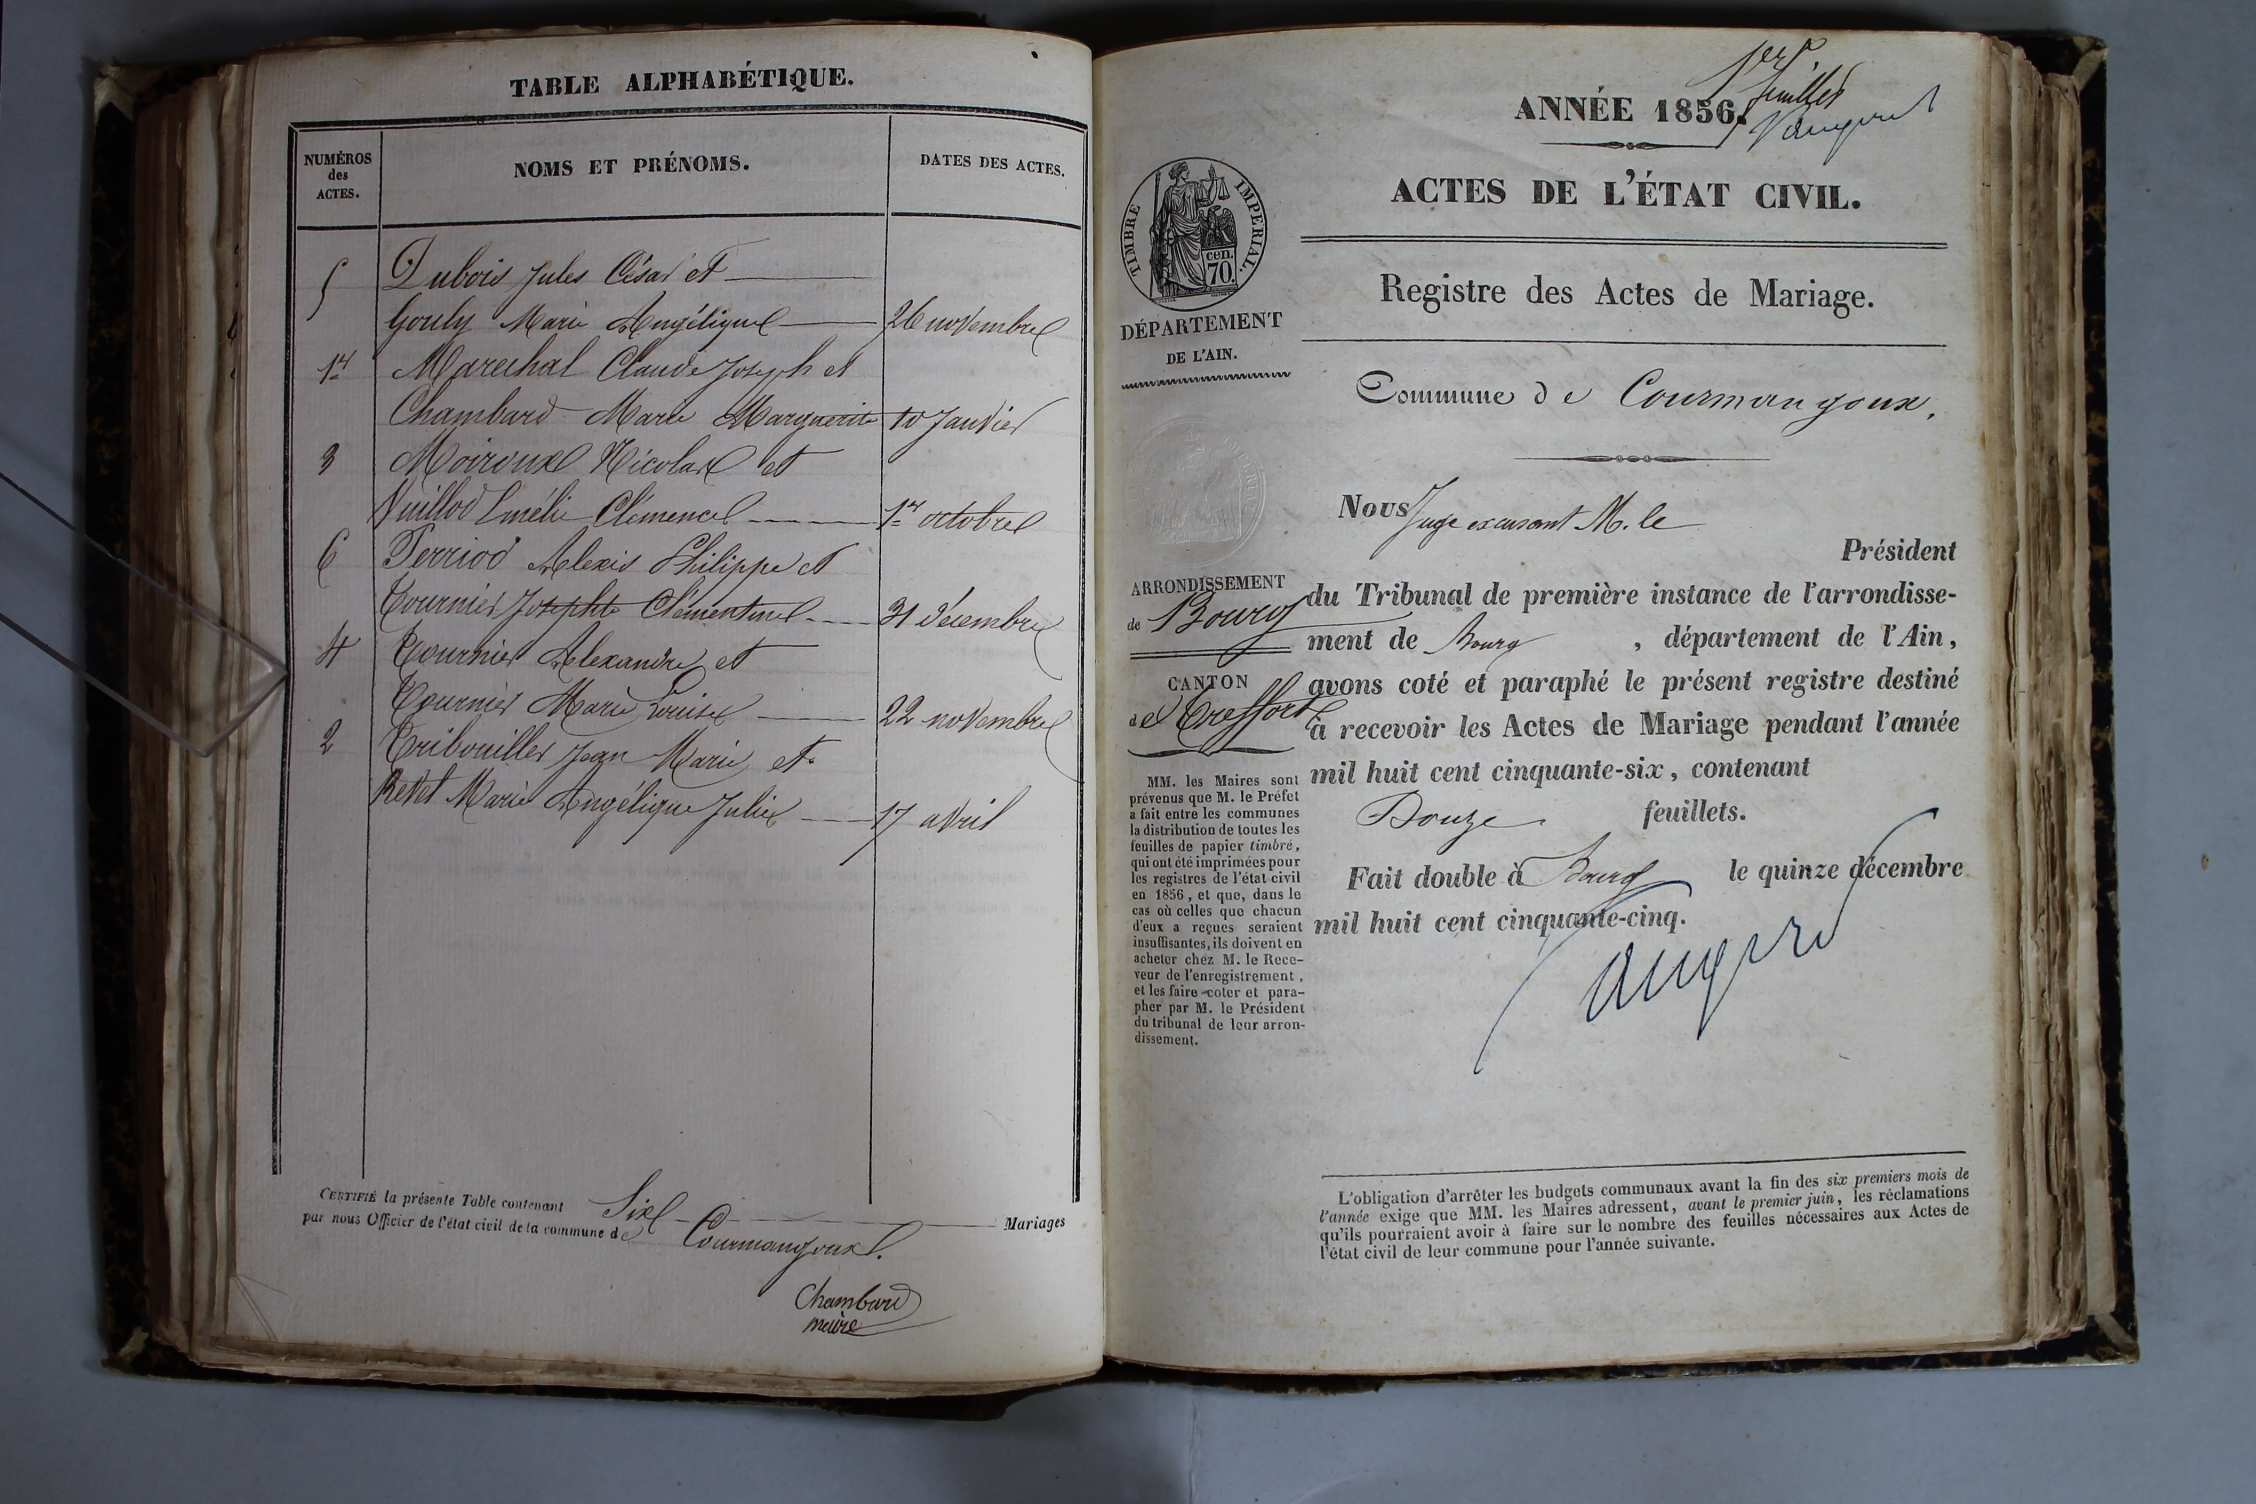 TABLE ALPHABÉTIQUE.
NUMÉROS
des
ACTES.
NOMS ET PRÉNOMS.
DATES DES ACTES.
5 Dubois Jules César et
Gouly Marie Angélique 26 novembre
1er Marechal Claude Joseph et
Chambard Marie Marguerite 10 Janvier
3 Moiroux Nicolas et
Vuillod Amélie Clémence 1er octobre
6 Perriod Alexis Philippe et
Tournier Josephte Clémentine 31 décembre
4 Tournier Alexandre et
Tournier Marie Louise 22 novembre
2 Tribouillet Jean Marie et
Revet Marie Angélique Julie 17 avril
CERTIFIÉ la présente Table contenant Six Mariages
par nous Officier de l'état civil de la commune de Courmangoux.
Chambard
maire
1er feuillet
ANNÉE 1856.
ACTES DE L'ÉTAT CIVIL.
TIMBRE IMPERIAL.
cen.
70.
DÉPARTEMENT
DE L'AIN.
Registre des Actes de Mariage.
Commune de Courmangoux.
ARRONDISSEMENT
de Bourg
CANTON
de Treffort
MM. les Maires sont
prévenus que M. le Préfet
a fait entre les communes
la distribution de toutes les
feuilles de papier timbré,
qui ont été imprimées pour
les registres de l'état civil
en 1856, et que, dans le
cas où celles que chacun
d'eux a reçues seraient
insuffisantes, ils doivent en
acheter chez M. le Rece-
veur de l'enregistrement,
et les faire coter et para-
pher par M. le Président
du tribunal de leur arron-
dissement.
Nous Juge excusant M. le
Président
du Tribunal de première instance de l'arrondisse-
ment de Bourg, département de l'Ain,
avons coté et paraphé le présent registre destiné
à recevoir les Actes de Mariage pendant l'année
mil huit cent cinquante-six, contenant
Douze feuillets.
Fait double à Bourg le quinze décembre
mil huit cent cinquante-cinq.
L'obligation d'arrêter les budgets communaux avant la fin des six premiers mois de
l'année exige que MM. les Maires adressent, avant le premier juin, les réclamations
qu'ils pourraient avoir à faire sur le nombre des feuilles nécessaires aux Actes de
l'état civil de leur commune pour l'année suivante.